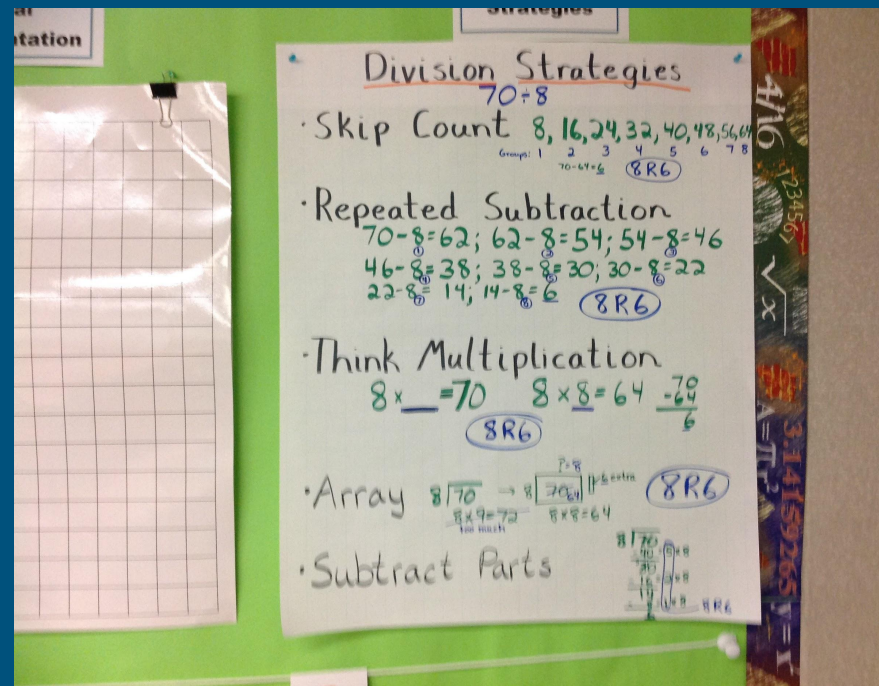 tation
Strategies
Division Strategies
70÷8
·Skip Count 8, 16, 24, 32, 40, 48, 56, 64
Groups: 1 2 3 4 5 6 7 8
70-64=6 8R6
·Repeated Subtraction
70-8=62; 62-8=54; 54-8=46
1 2 3
46-8=38; 38-8=30; 30-8=22
4 5 6
22-8=14; 14-8=6 8R6
7 8
·Think Multiplication
8×__=70 8×8=64 70
-64
6
8R6
?=8
·Array 8)70 → 8 70 64 6 extra 8R6
8×9=72 8×8=64
too much
8)70
·Subtract Parts
8R6
4/16
123456
√x
A=πr²
3.14159265